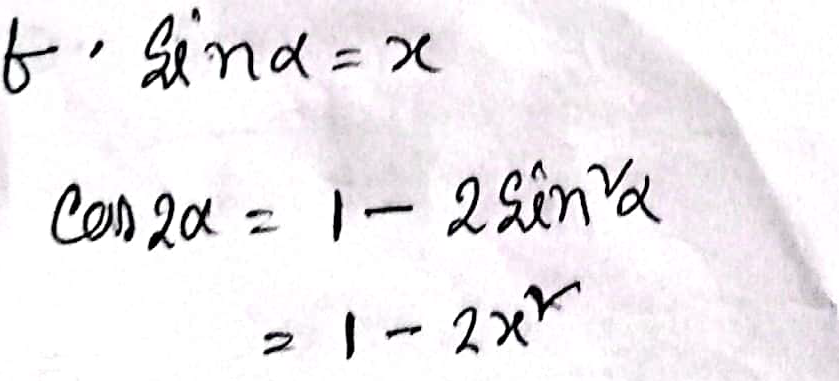 b. Sinα = x
Cos 2α = 1 - 2 Sin²α
= 1 - 2x²